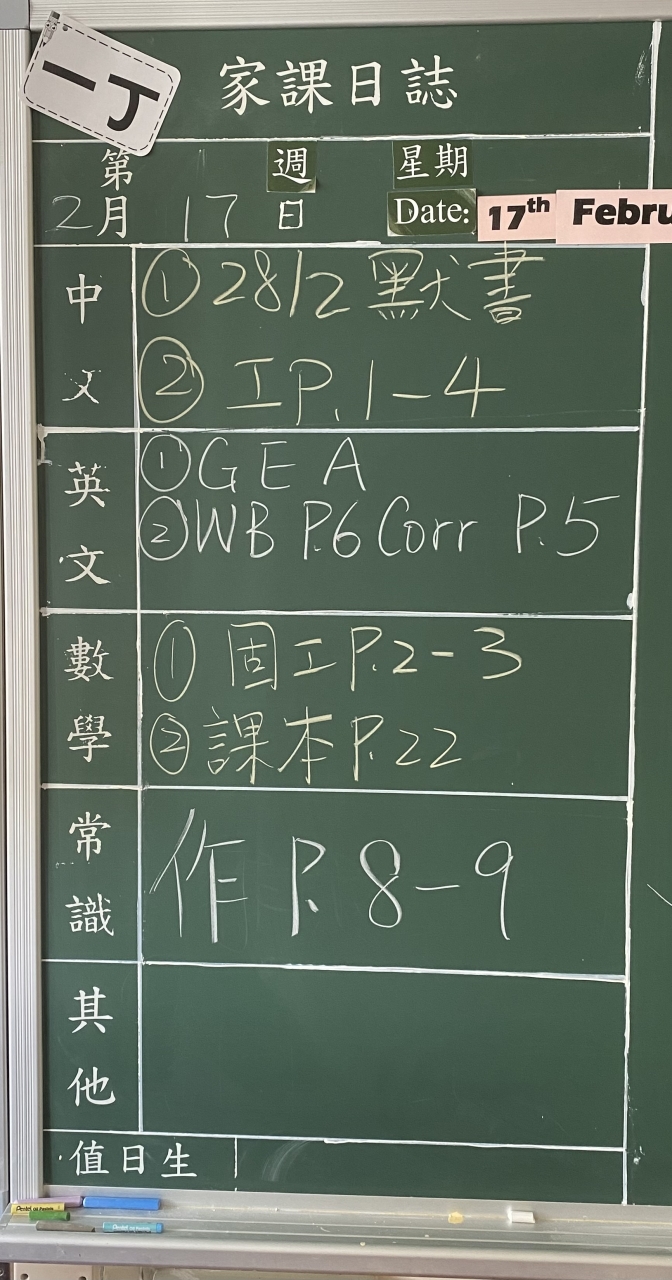 一丁
家課日誌
第 週 星期
2月 17日 Date: 17th Febru
中文
①28/2 默書
②工P.1-4
英文
①GEA
②WB P.6 Corr P.5
數學
①固工P.2-3
②課本P.22
常識
作P.8-9
其他
值日生